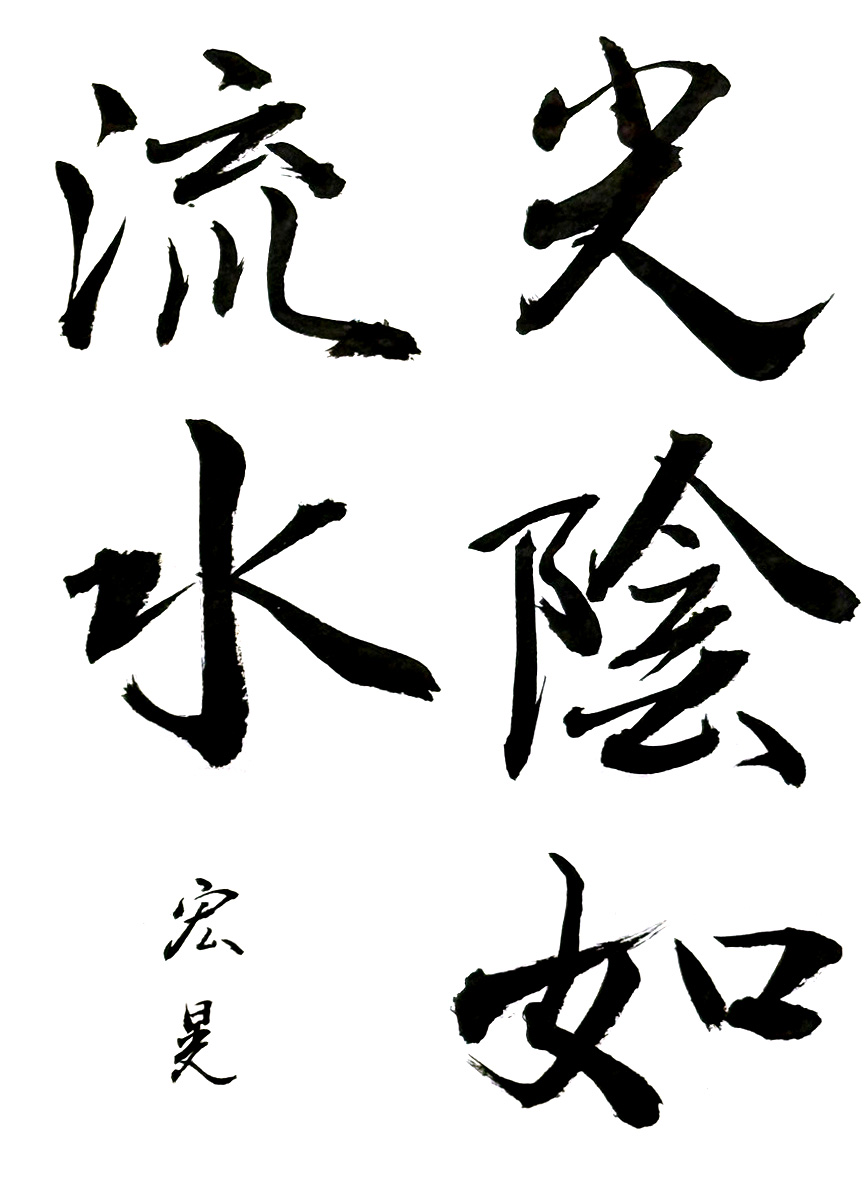 光陰如
流水
宏晃